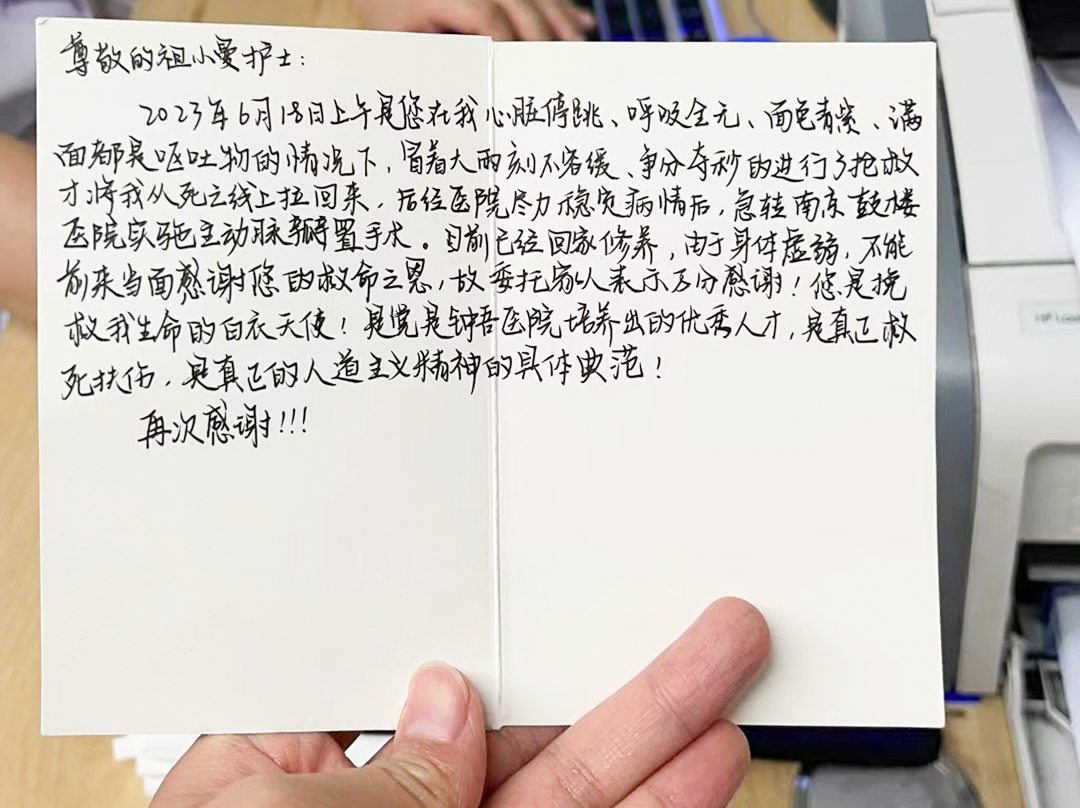 尊敬的祖小曼护士:
2023年6月18日上午是您在我心脏停跳、呼吸全无、面色青紫、满
面都是呕吐物的情况下,冒着大雨刻不容缓、争分夺秒的进行了抢救
才将我从死亡线上拉回来,后经医院尽力稳定病情后,急转南京鼓楼
医院实施主动脉瓣置手术。目前已经回家修养,由于身体虚弱,不能
前来当面感谢您的救命之恩,故委托家人表示万分感谢!您是挽
救我生命的白衣天使!是党是钟吾医院培养出的优秀人才,是真正救
死扶伤,是真正的人道主义精神的具体典范!
再次感谢!!!
HP Lase